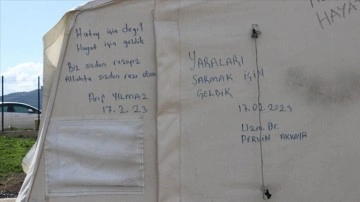 Hatay için değil
Hayat için geldik
Biz sizden razıyız
Allahta sizden razı olsun
Arif YILMAZ
17.2.23
YARALARI
SARMAK İÇİN
GELDİK
17.02.2023
Uzm. Dr.
PERVİN AKKAYA
HAYA